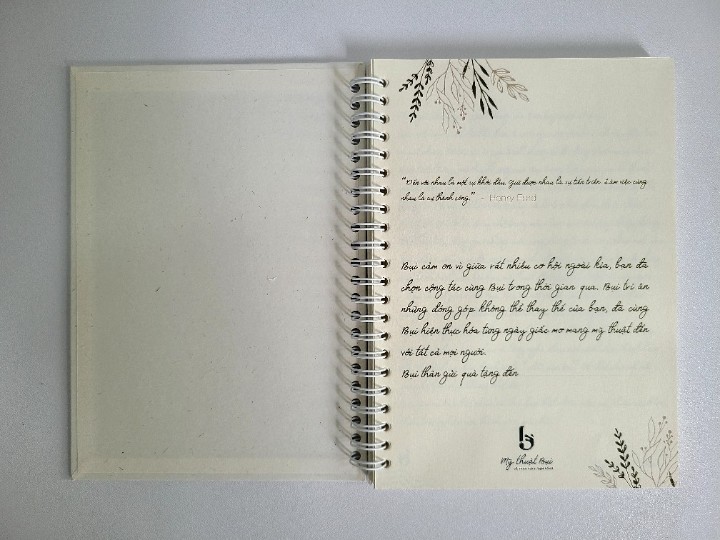 "Đến với nhau là một sự khởi đầu. Giữ được nhau là sự tiến triển. Làm việc cùng
nhau là sự thành công." - Henry Ford
Bụi cảm ơn vì giữa rất nhiều cơ hội ngoài kia, bạn đã
chọn cộng tác cùng Bụi trong thời gian qua. Bụi tri ân
những đóng góp không thể thay thế của bạn, đã cùng
Bụi hiện thực hóa từng ngày giấc mơ mang mỹ thuật đến
với tất cả mọi người.
Bụi thân gửi quà tặng đến
Mỹ thuật Bụi